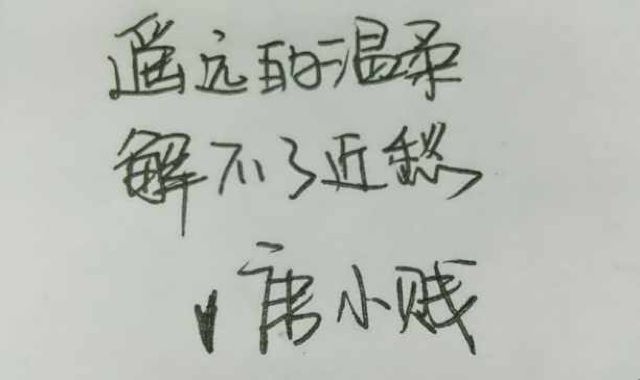 遥远的温柔
解不了近愁
唐小贱